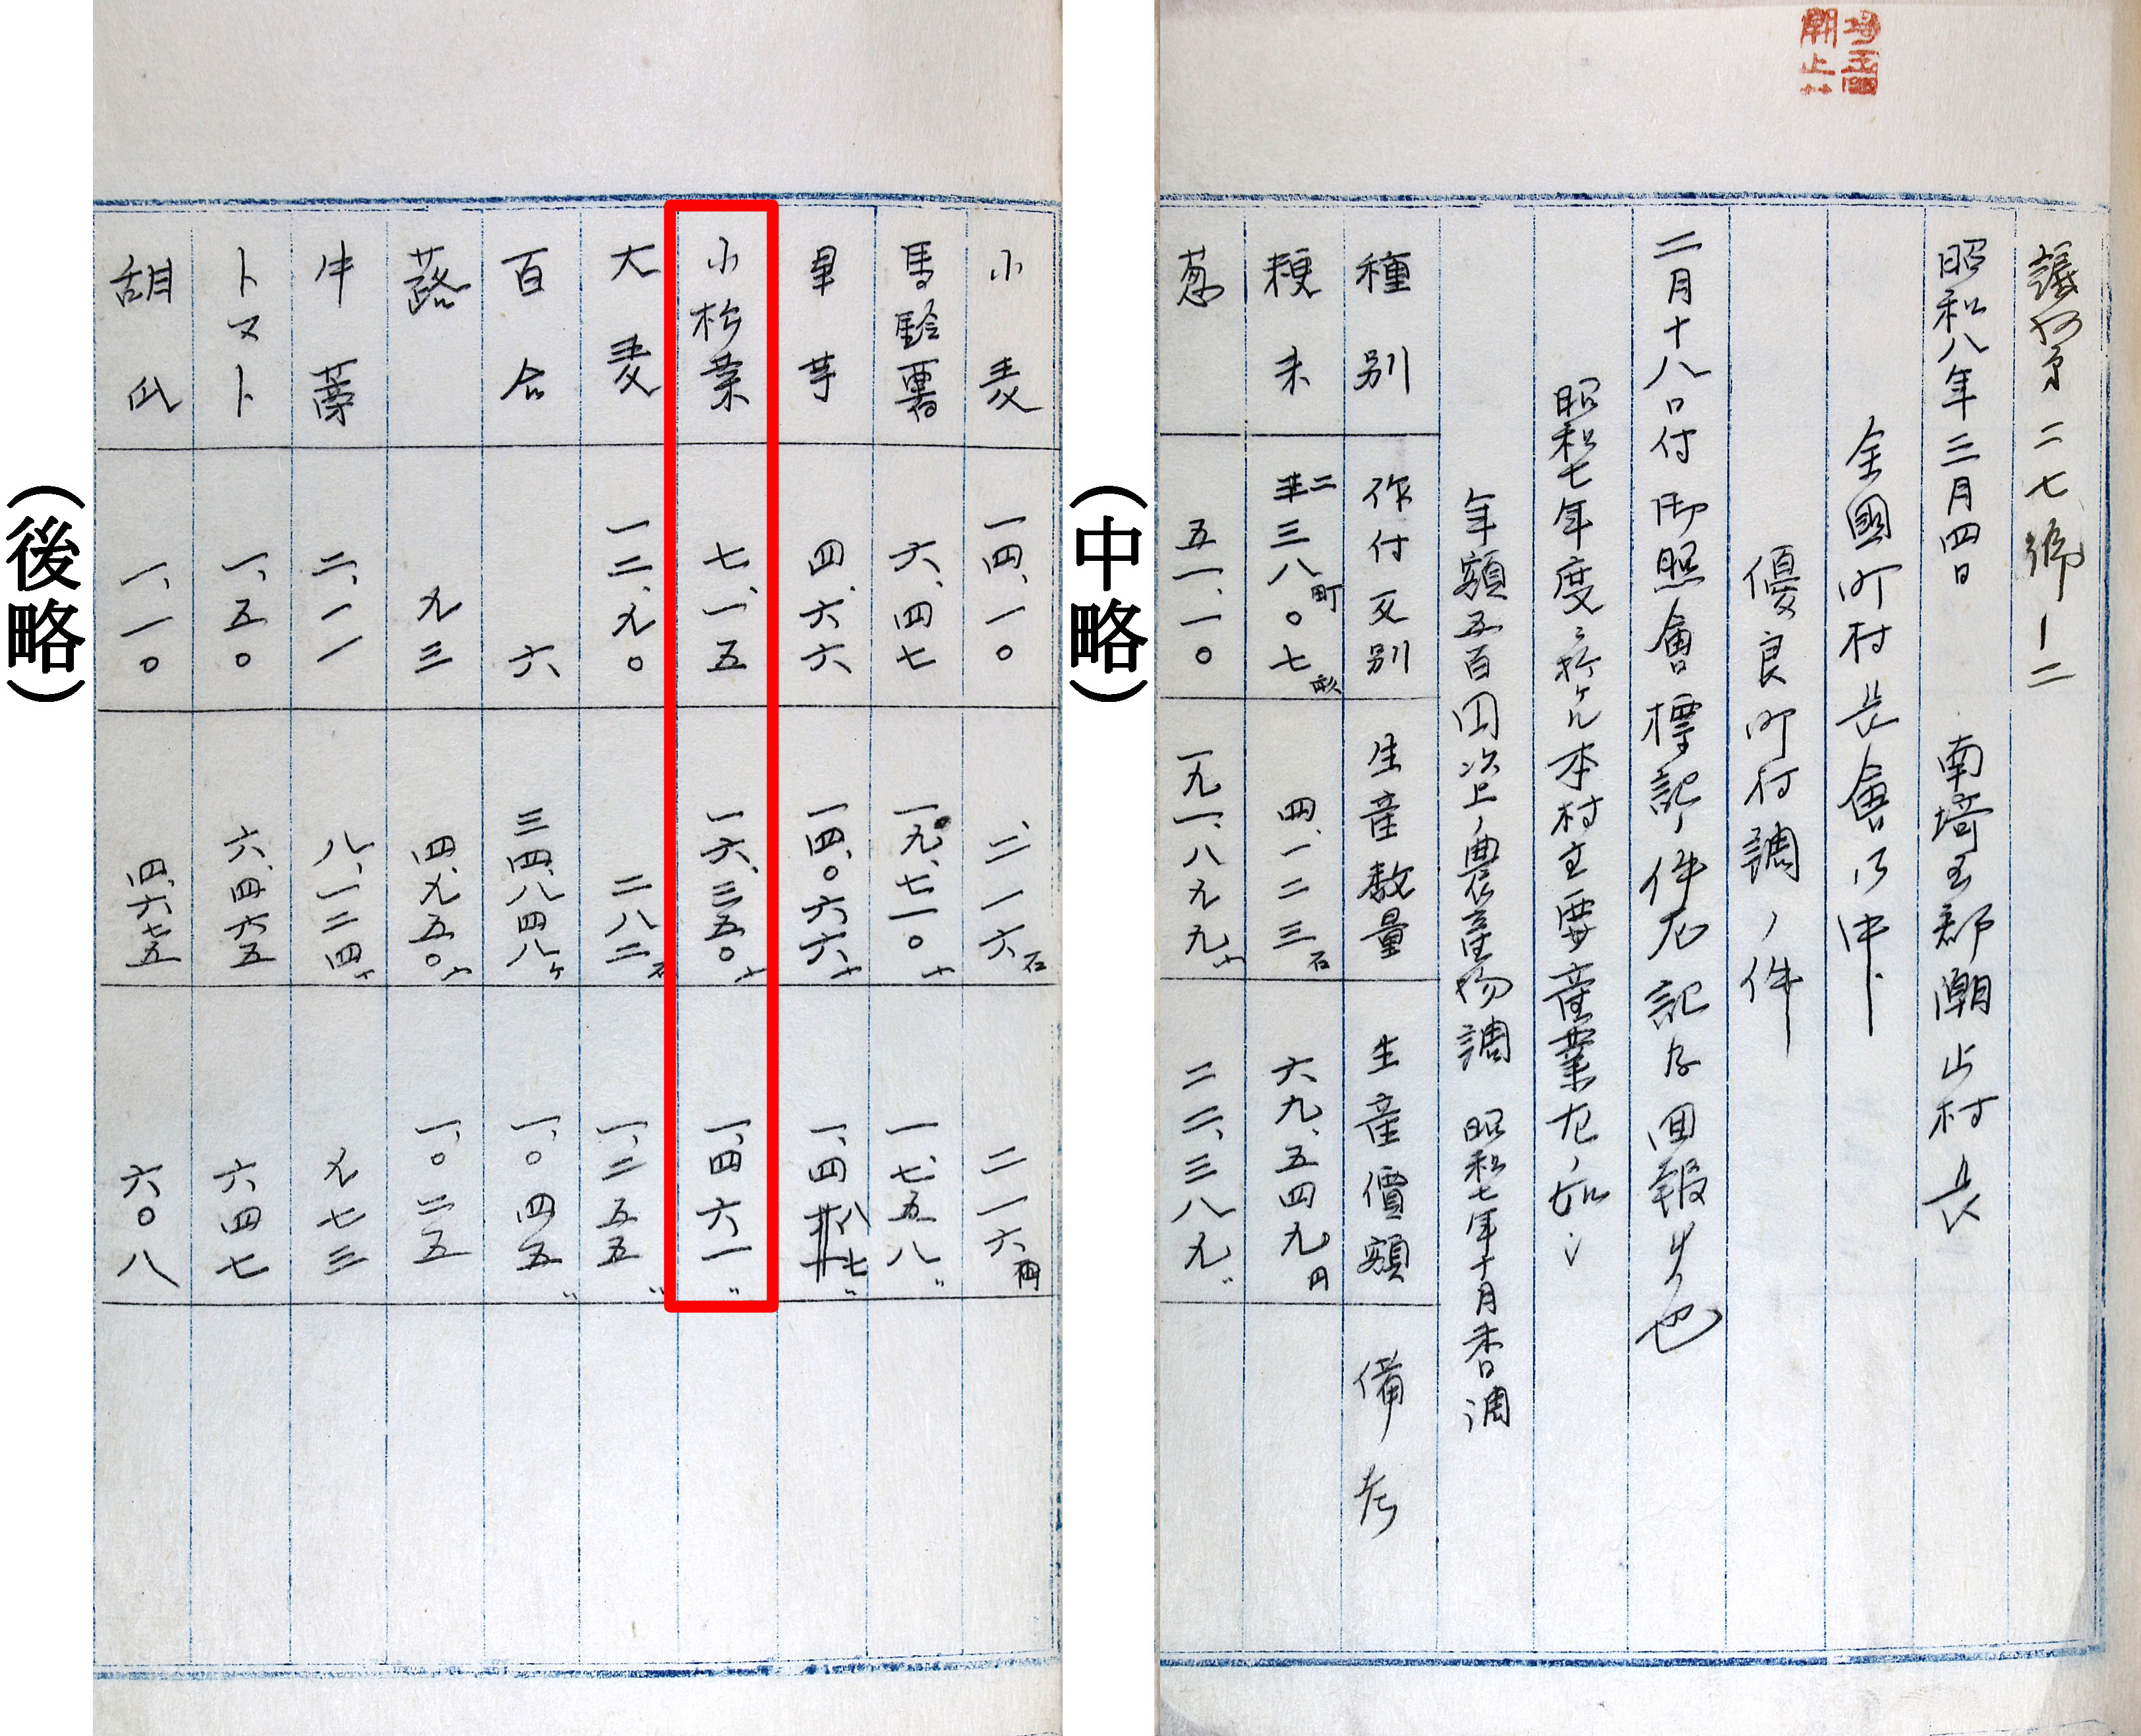 議村第二七號ノ二
昭和八年三月四日 南埼玉郡潮止村長
全國町村長會御中
優良町村調ノ件
二月十八日付御照會標記ノ件左記ノ通回報候也
昭和七年度ニ於ケル本村主要産業左ノ如シ
年額五百円以上ノ農産物調 昭和七年十月末日調
種別 作付反別 生産数量 生産價額 備考
粳米 二三八町〇七畝 四、一二三石 六九、五四九円
葱 五一、一〇 一九一、八九九〃 二二、三八九〃
(中略)
小麦 一四、一〇 二一六石 二一六円
馬鈴薯 六、四七 一九、七一〇〃 一、七五八〃
里芋 四、六六 一四、〇六六〃 一、四八七〃
小松菜 七、一五 一六、三五〇〃 一、四六一〃
大麦 一二、九〇 二八二石 一、二五五〃
百合 六 三四、八四八ケ 一、〇四五〃
蕗 九三 四、九五〇〃 一、〇二五
牛蒡 二、一一 八、一二四〃 九七三
トマト 一、五〇 六、四六五 六四七
胡瓜 一、一〇 四、六七五 六〇八
(後略)